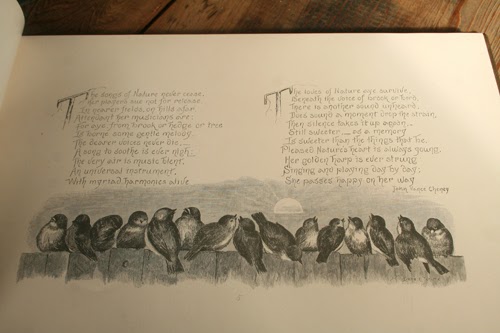 The songs of Nature never cease,
Her players sue not for release
In nearer fields, on hills afar
Attendant her musicians are:
For aye from brook or hedge or tree
Is borne some gentle melody.
The dearer voices never die,
A song to soothe is ever nigh
The very air to music blent,
An universal instrument,
With myriad harmonies alive
The loves of Nature aye survive,
Beneath the voice of brook or bird,
There is another sound unheard.
Dies sound a moment, deep the strain,
Then silence takes it up again
Still sweeter as a memory
Is sweeter than the things that be.
Pleased Nature's heart is always young,
Her golden harp is ever strung
Singing and playing day by day,
She passes happy on her way
John Vance Cheney
5